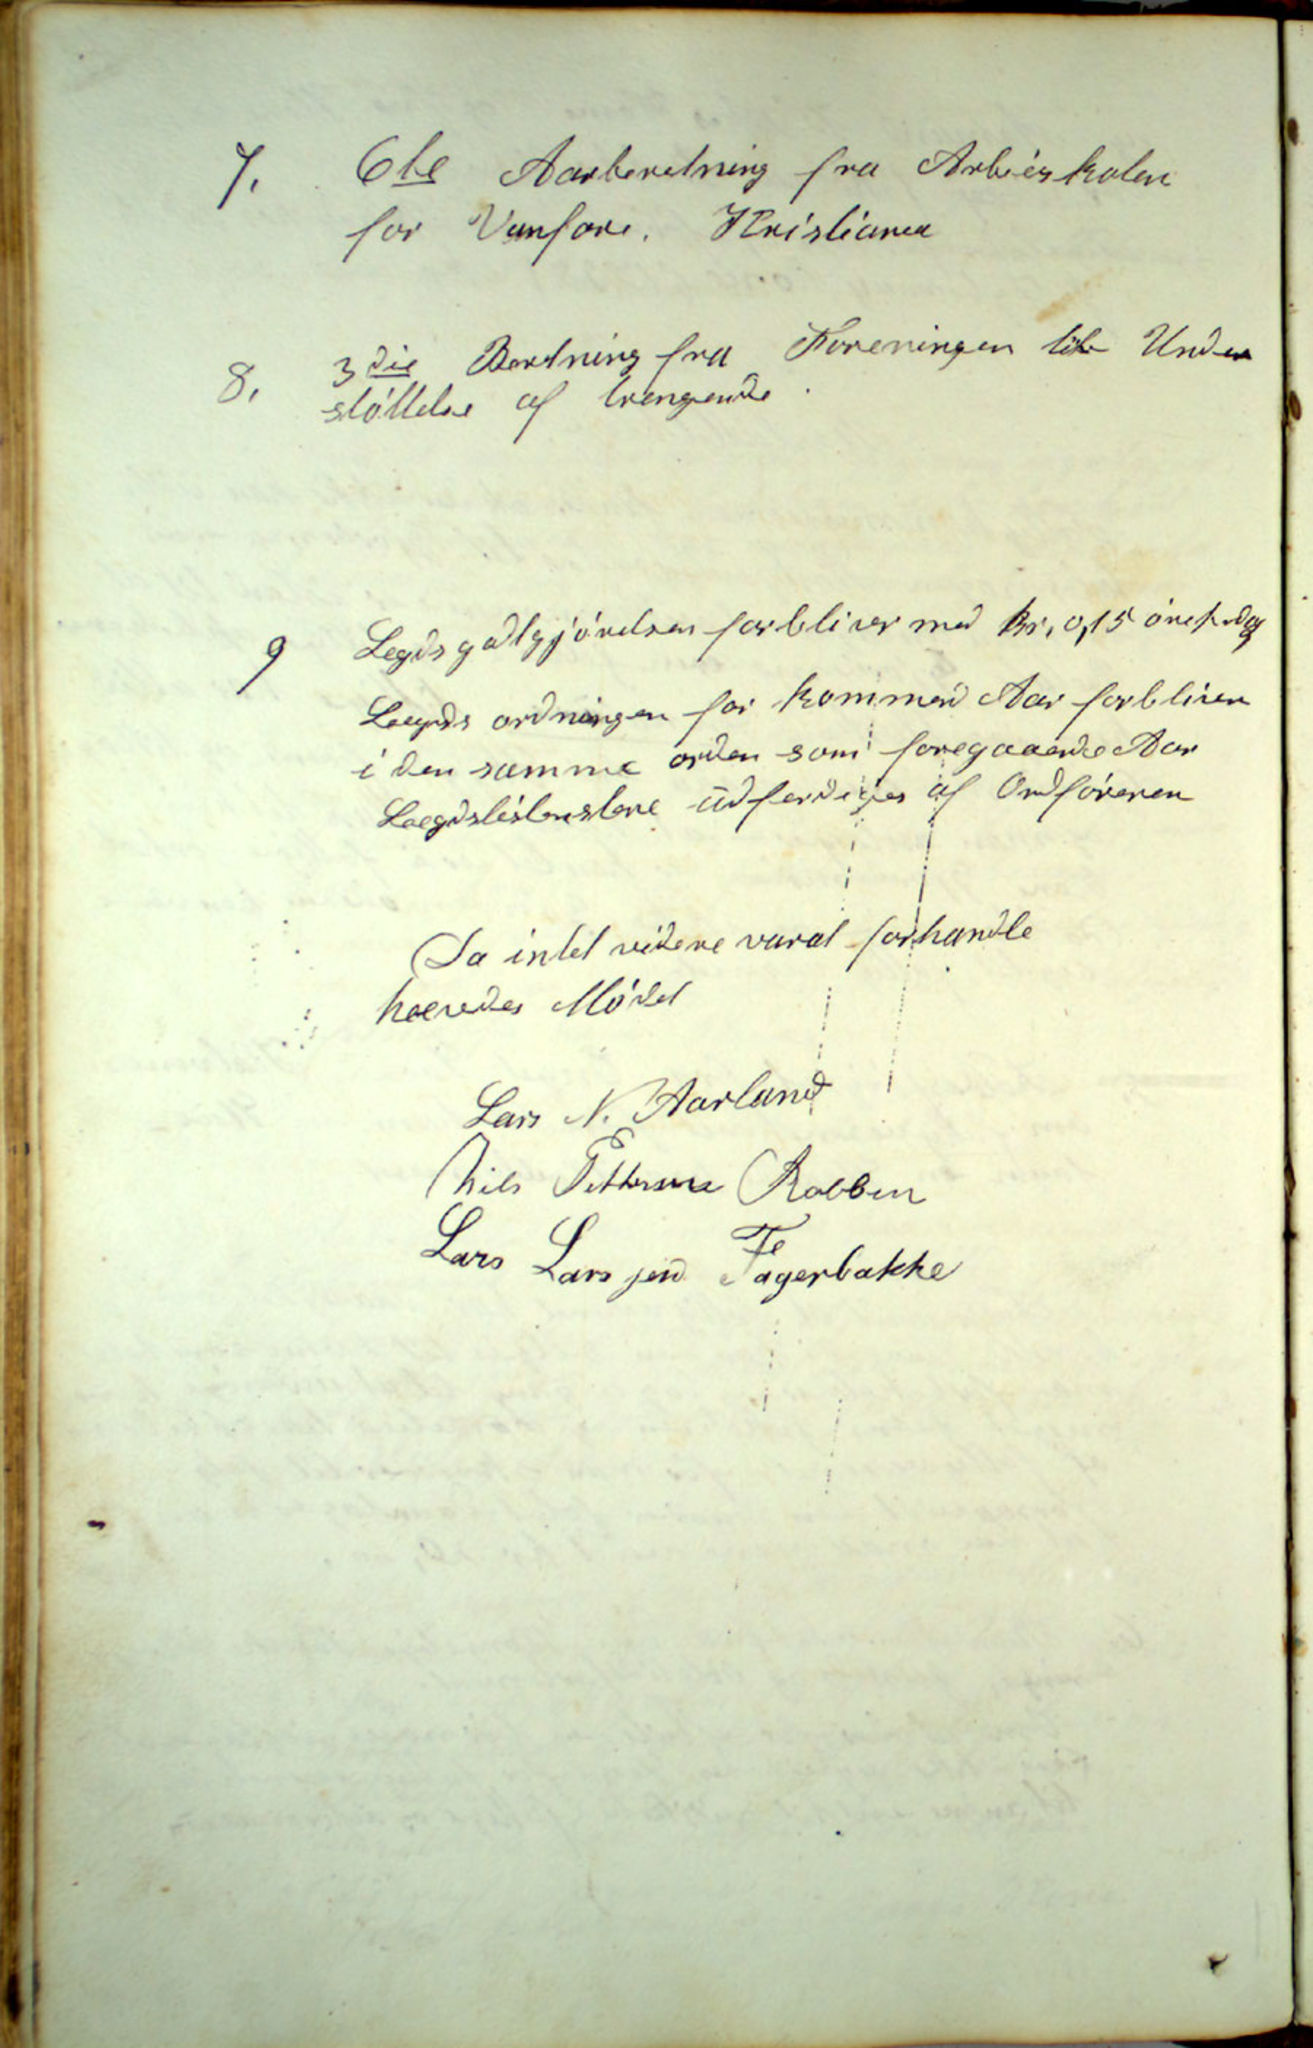 7. 6te Aarberetning fra Arbeiskolen
for Vanføre. Kristiania
8. 3die Beretning fra Foreningen til Under
støttelse af trengende.
9 Legdsgodtgjørelsen forbliver med Kr. 0,15 øre pr. dag
Laegds ordningen for kommend Aar forbliver
i den samme orden som foregaaende Aar
Laegdslisterne udferdiges af Ordføreren
Da intet videre varat forhandle
haevedes Mødet
Lars N. Aarland
Nils Pettersen Robben
Lars Larsen Fagerbakke